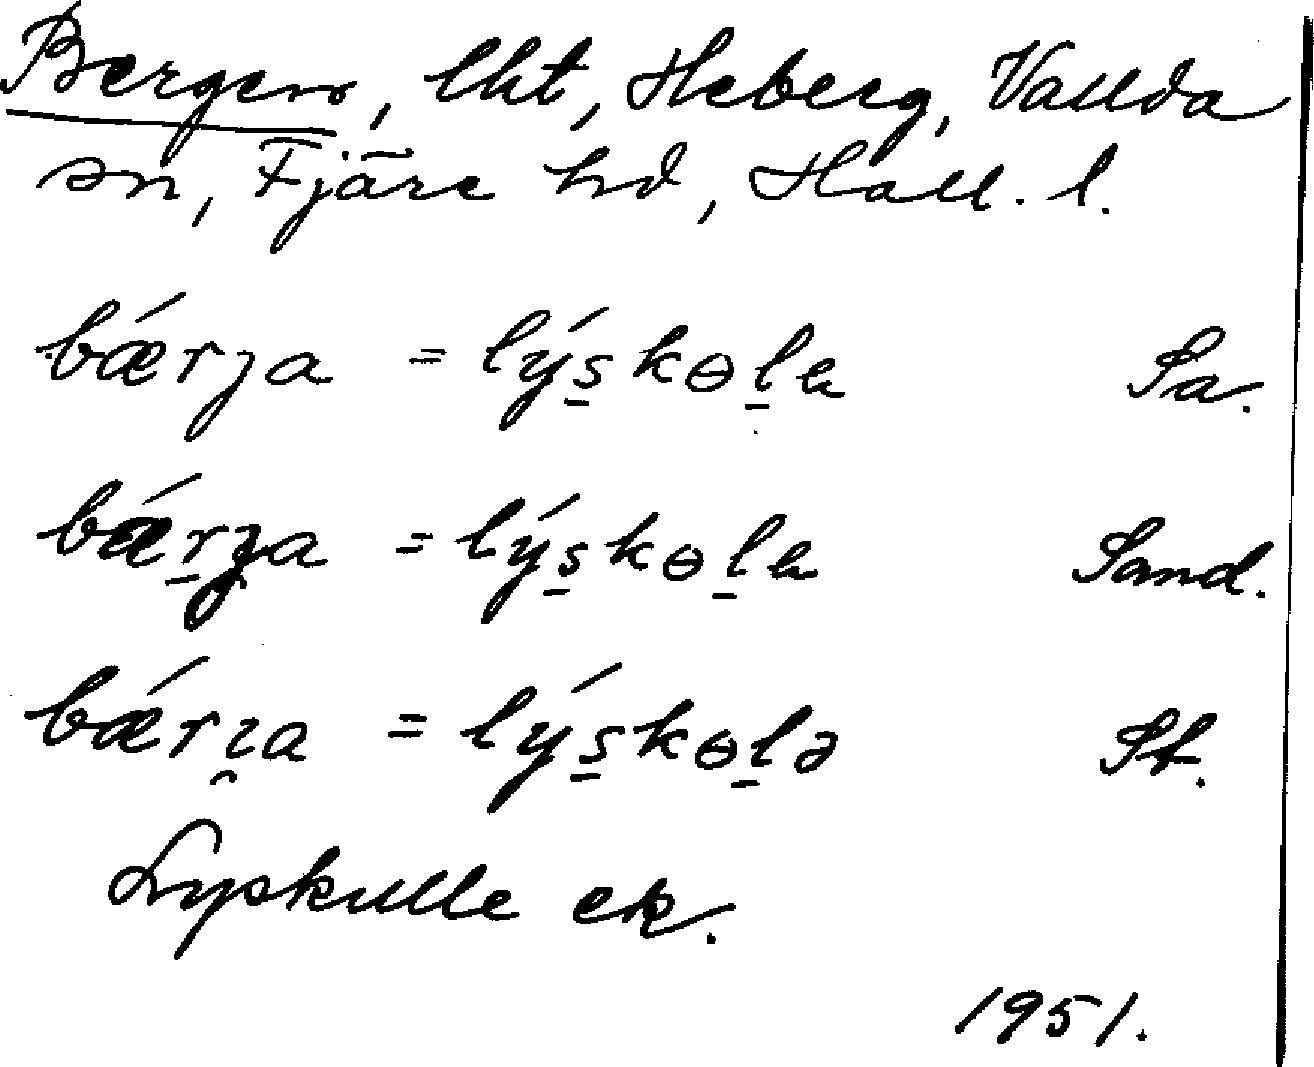 Bergen, lht, Heberg, Vallda
sn, Fjäre hd, Hall. l.
bǽrȷa = lýs̲kɵl̲ɐ Sa.
bǽr̲ȷa = lýs̲kɵl̲ɐ Sand.
bǽrı̯a = lýs̲kɵl̲ə St.
Lyskulle ek.
1951.